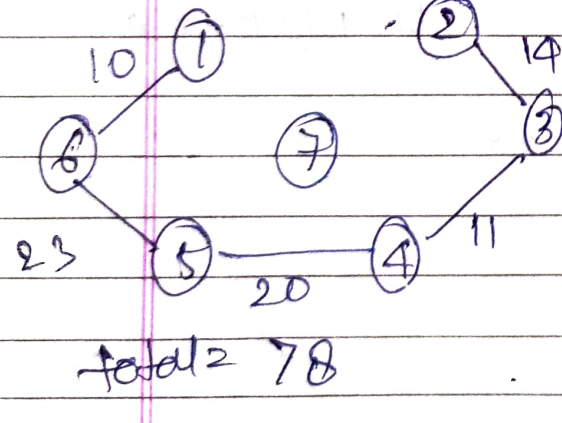 10 1 2 14
6 7 3
23 5 20 4 11
total = 78